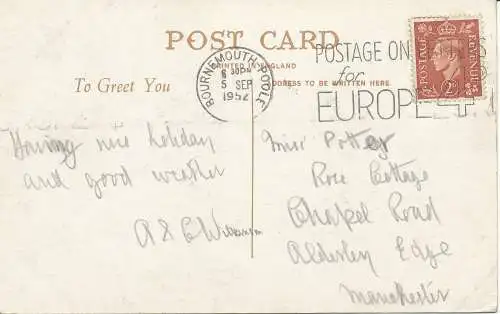 POST CARD
PRINTED IN ENGLAND
To Greet You
ADDRESS TO BE WRITTEN HERE.
BOURNEMOUTH-POOLE
6 30PM
5 SEP
1952
POSTAGE ON
for
EUROPE
POSTAGE
REVENUE
Having nice holiday
and good weather
A & E Wilkinson
Miss Potter
Rose Cottage
Chapel Road
Alderley Edge
Manchester